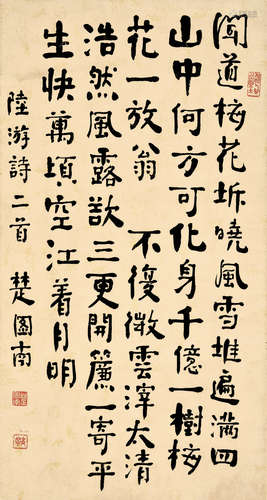 聞道梅花坼曉風雪堆遍滿四
山中何方可化身千億一樹梅
花一放翁 不復微雲滓太清
浩然風露欲三更開簾一寄平
生快萬頃空江着月明
陸游詩二首 楚圖南